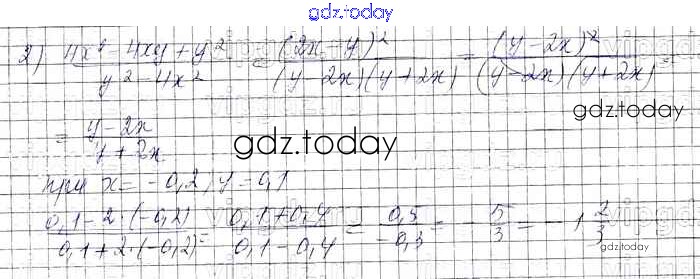 gdz.today
2) (4x² - 4xy + y²)/(y² - 4x²) = (2x - y)²/((y - 2x)(y + 2x)) = (y - 2x)²/((y - 2x)(y + 2x)) =
gdz.today
= (y - 2x)/(y + 2x)
gdz.today
при x = -0,2, y = 0,1
(0,1 - 2·(-0,2))/(0,1 + 2·(-0,2)) = (0,1 + 0,4)/(0,1 - 0,4) = 0,5/(-0,3) = -5/3 = -1 2/3